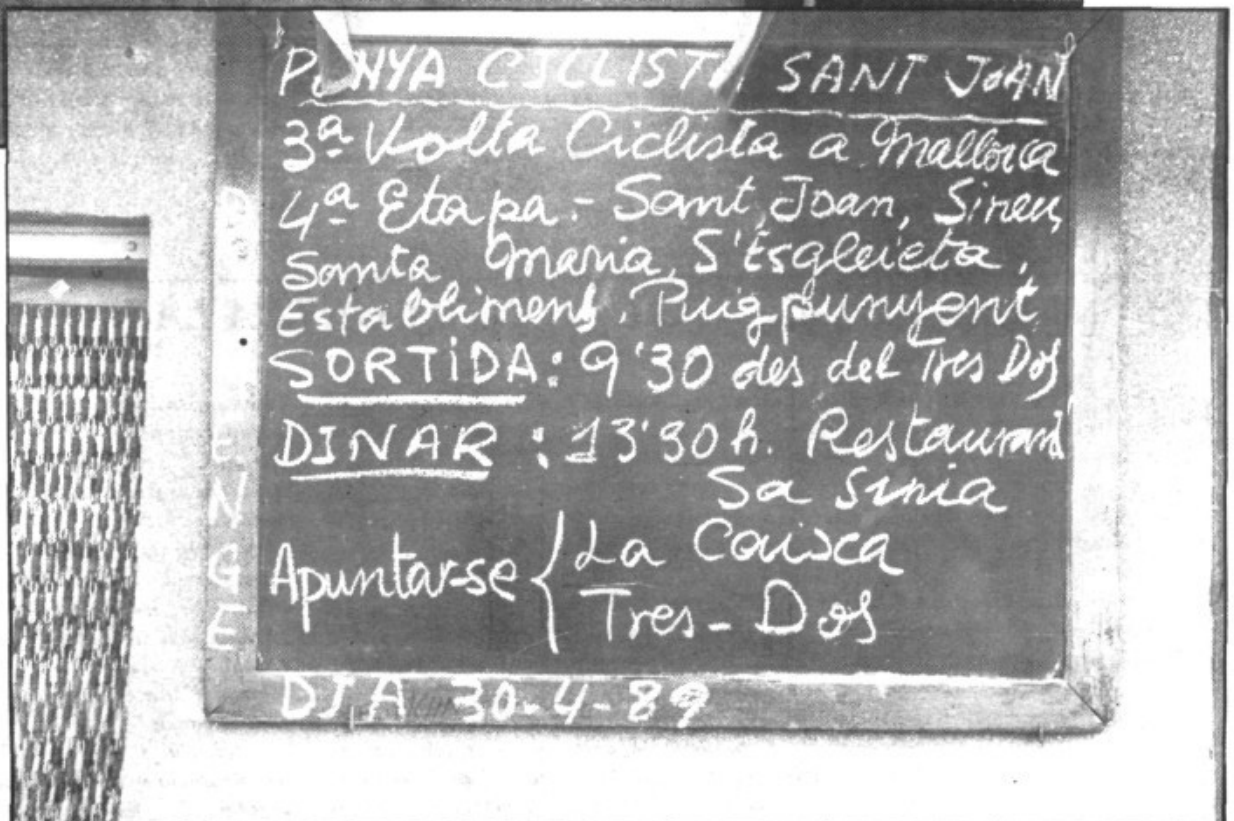 PENYA CICLISTA SANT JOAN
3ª Volta Ciclista a Mallorca
4ª Etapa - Sant Joan, Sineu,
Santa Maria, S'Esgleieta,
Establiments, Puigpunyent
SORTIDA: 9'30 des del Tres Dos
DINAR: 13'30 h. Restaurant
Sa Sinia
Apuntar-se { La Cauisca
Tres-Dos
DIA 30-4-89